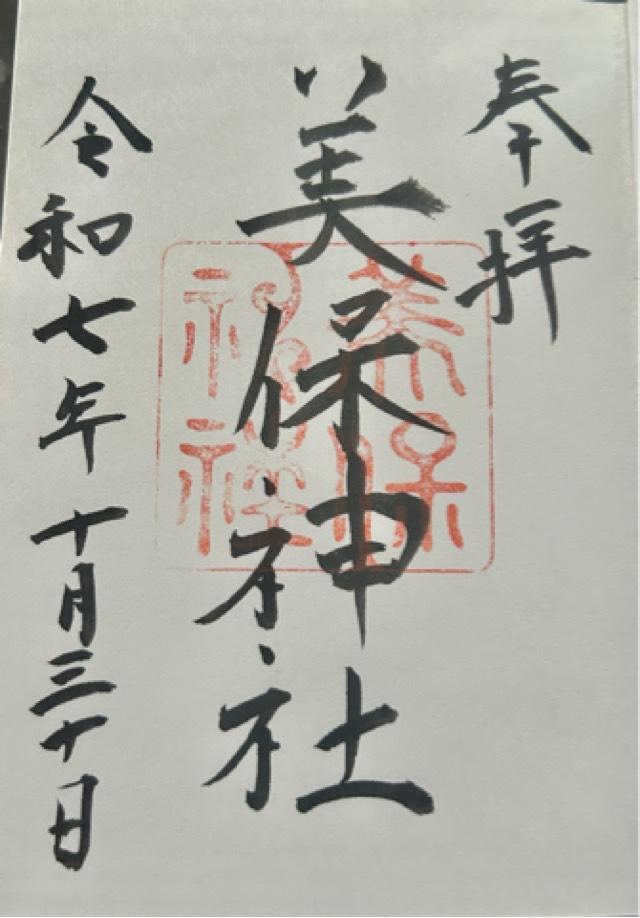 奉拝
美保神社
美保神社
令和七年十月三十日